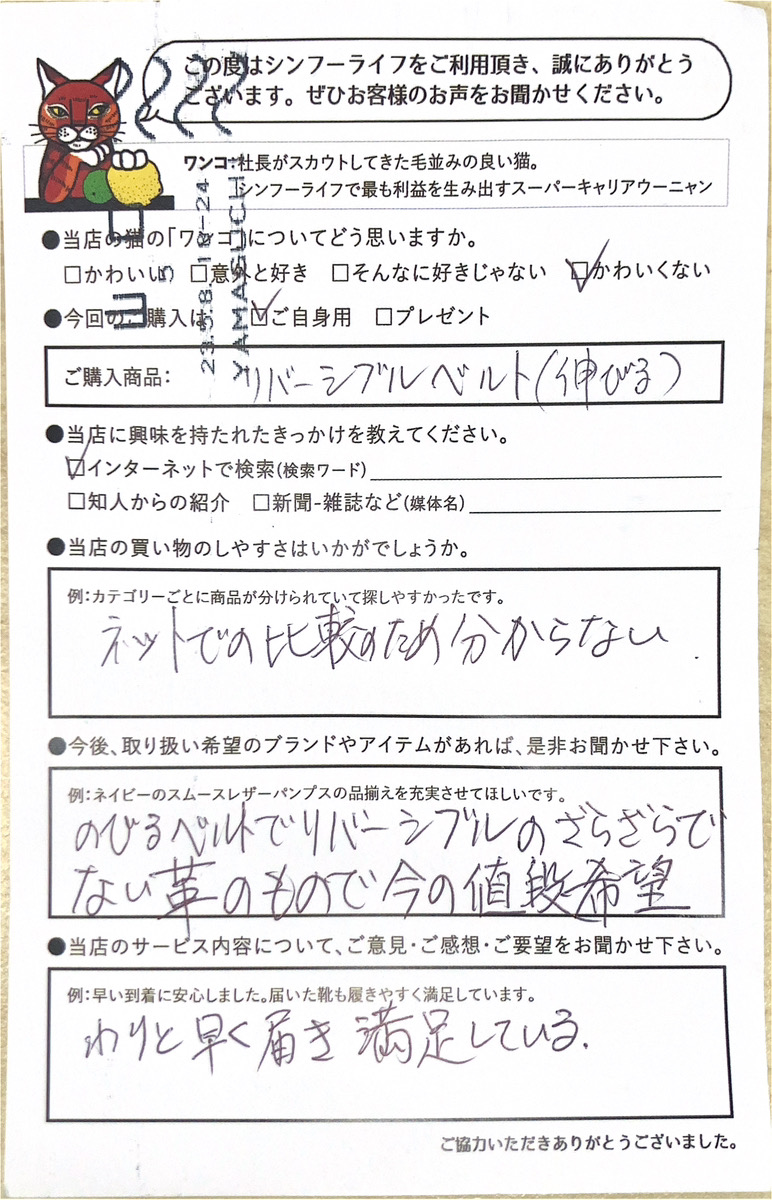 この度はシンフーライフをご利用頂き、誠にありがとう
ございます。ぜひお客様のお声をお聞かせください。
ワンコ:社長がスカウトしてきた毛並みの良い猫。
シンフーライフで最も利益を生み出すスーパーキャリアウーニャン
YAMAGUCHI
●当店の猫の「ワンコ」についてどう思いますか。
□かわいい □意外と好き □そんなに好きじゃない ☑かわいくない
●今回のご購入は ☑ご自身用 □プレゼント
ご購入商品: リバーシブルベルト(伸びる)
●当店に興味を持たれたきっかけを教えてください。
☑インターネットで検索(検索ワード)
□知人からの紹介 □新聞-雑誌など(媒体名)
●当店の買い物のしやすさはいかがでしょうか。
例:カテゴリーごとに商品が分けられていて探しやすかったです。
ネットでの比較のため分からない.
●今後、取り扱い希望のブランドやアイテムがあれば、是非お聞かせ下さい。
例:ネイビーのスムースレザーパンプスの品揃えを充実させてほしいです。
のびるベルトでリバーシブルのざらざらで
ない革のもので今の値段希望
●当店のサービス内容について、ご意見・ご感想・ご要望をお聞かせ下さい。
例:早い到着に安心しました。届いた靴も履きやすく満足しています。
わりと早く届き満足している.
ご協力いただきありがとうございました。